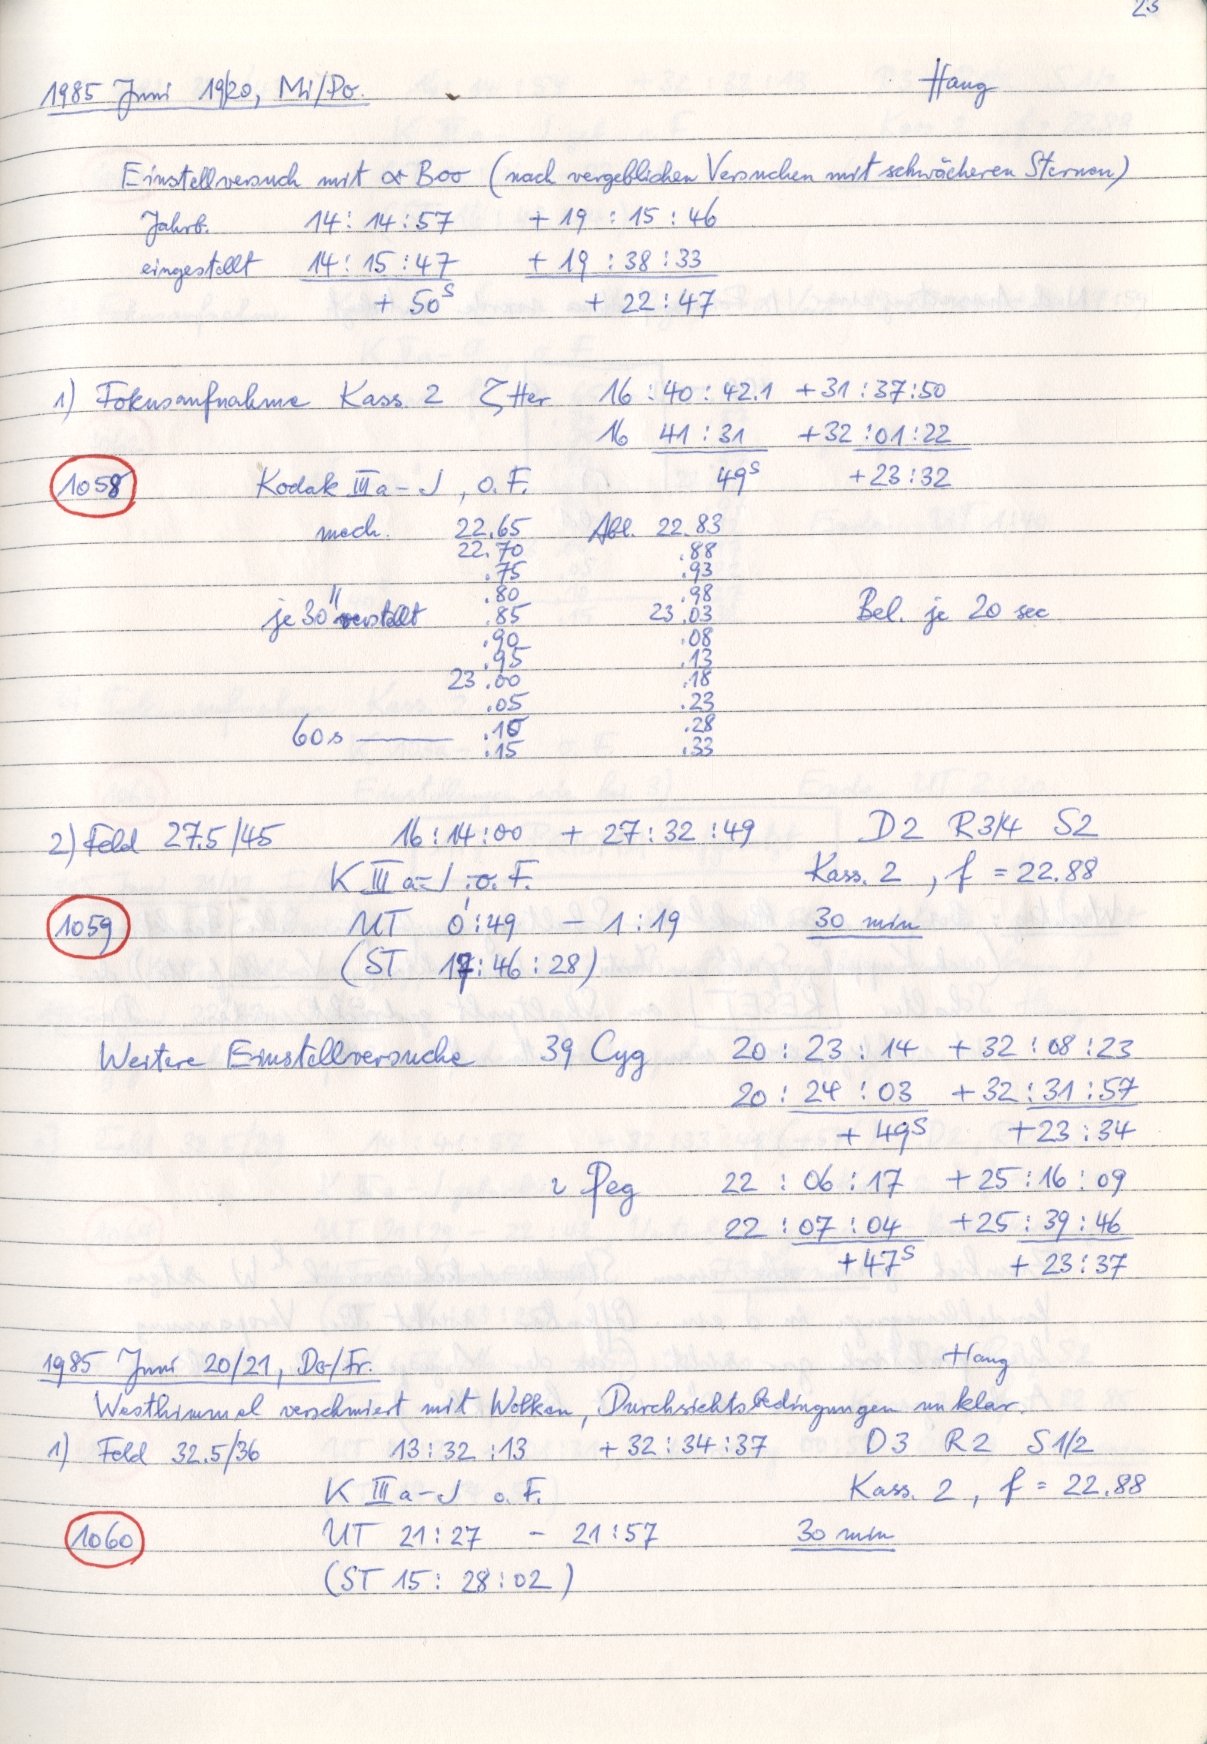 23
1985 Juni 19/20, Mi/Do. Haug
Einstellversuch mit α Boo (nach vergeblichen Versuchen mit schwächeren Sternen)
Jahrb. 14:14:57 +19:15:46
eingestellt 14:15:47 +19:38:33
+50s +22:47
1) Fokusaufnahme Kass. 2 ζ Her 16:40:42.1 +31:37:50
16 41:31 +32:01:22
1058 Kodak IIIa-J, o.F. 49s +23:32
mech. 22.65 Abl. 22.83
22.70 .88
.75 .93
.80 .98
je 30" verstellt .85 23.03 Bel. je 20 sec
.90 .08
.95 .13
23.00 .18
.05 .23
60s — .10 .28
.15 .33
2) Feld 27.5/45 16:14:00 +27:32:49 D2 R3/4 S2
K IIIa-J o.F. Kass. 2, f = 22.88
1059 UT 0:49 – 1:19 30 min
(ST 17:46:28)
Weitere Einstellversuche 39 Cyg 20:23:14 +32:08:23
20:24:03 +32:31:57
+49s +23:34
ι Peg 22:06:17 +25:16:09
22:07:04 +25:39:46
+47s +23:37
1985 Juni 20/21, Do/Fr. Haug
Westhimmel verschmiert mit Wolken, Durchsichtsbedingungen unklar.
1) Feld 32.5/36 13:32:13 +32:34:37 D3 R2 S1/2
K IIIa-J o.F. Kass. 2, f = 22.88
1060 UT 21:27 – 21:57 30 min
(ST 15:28:02)